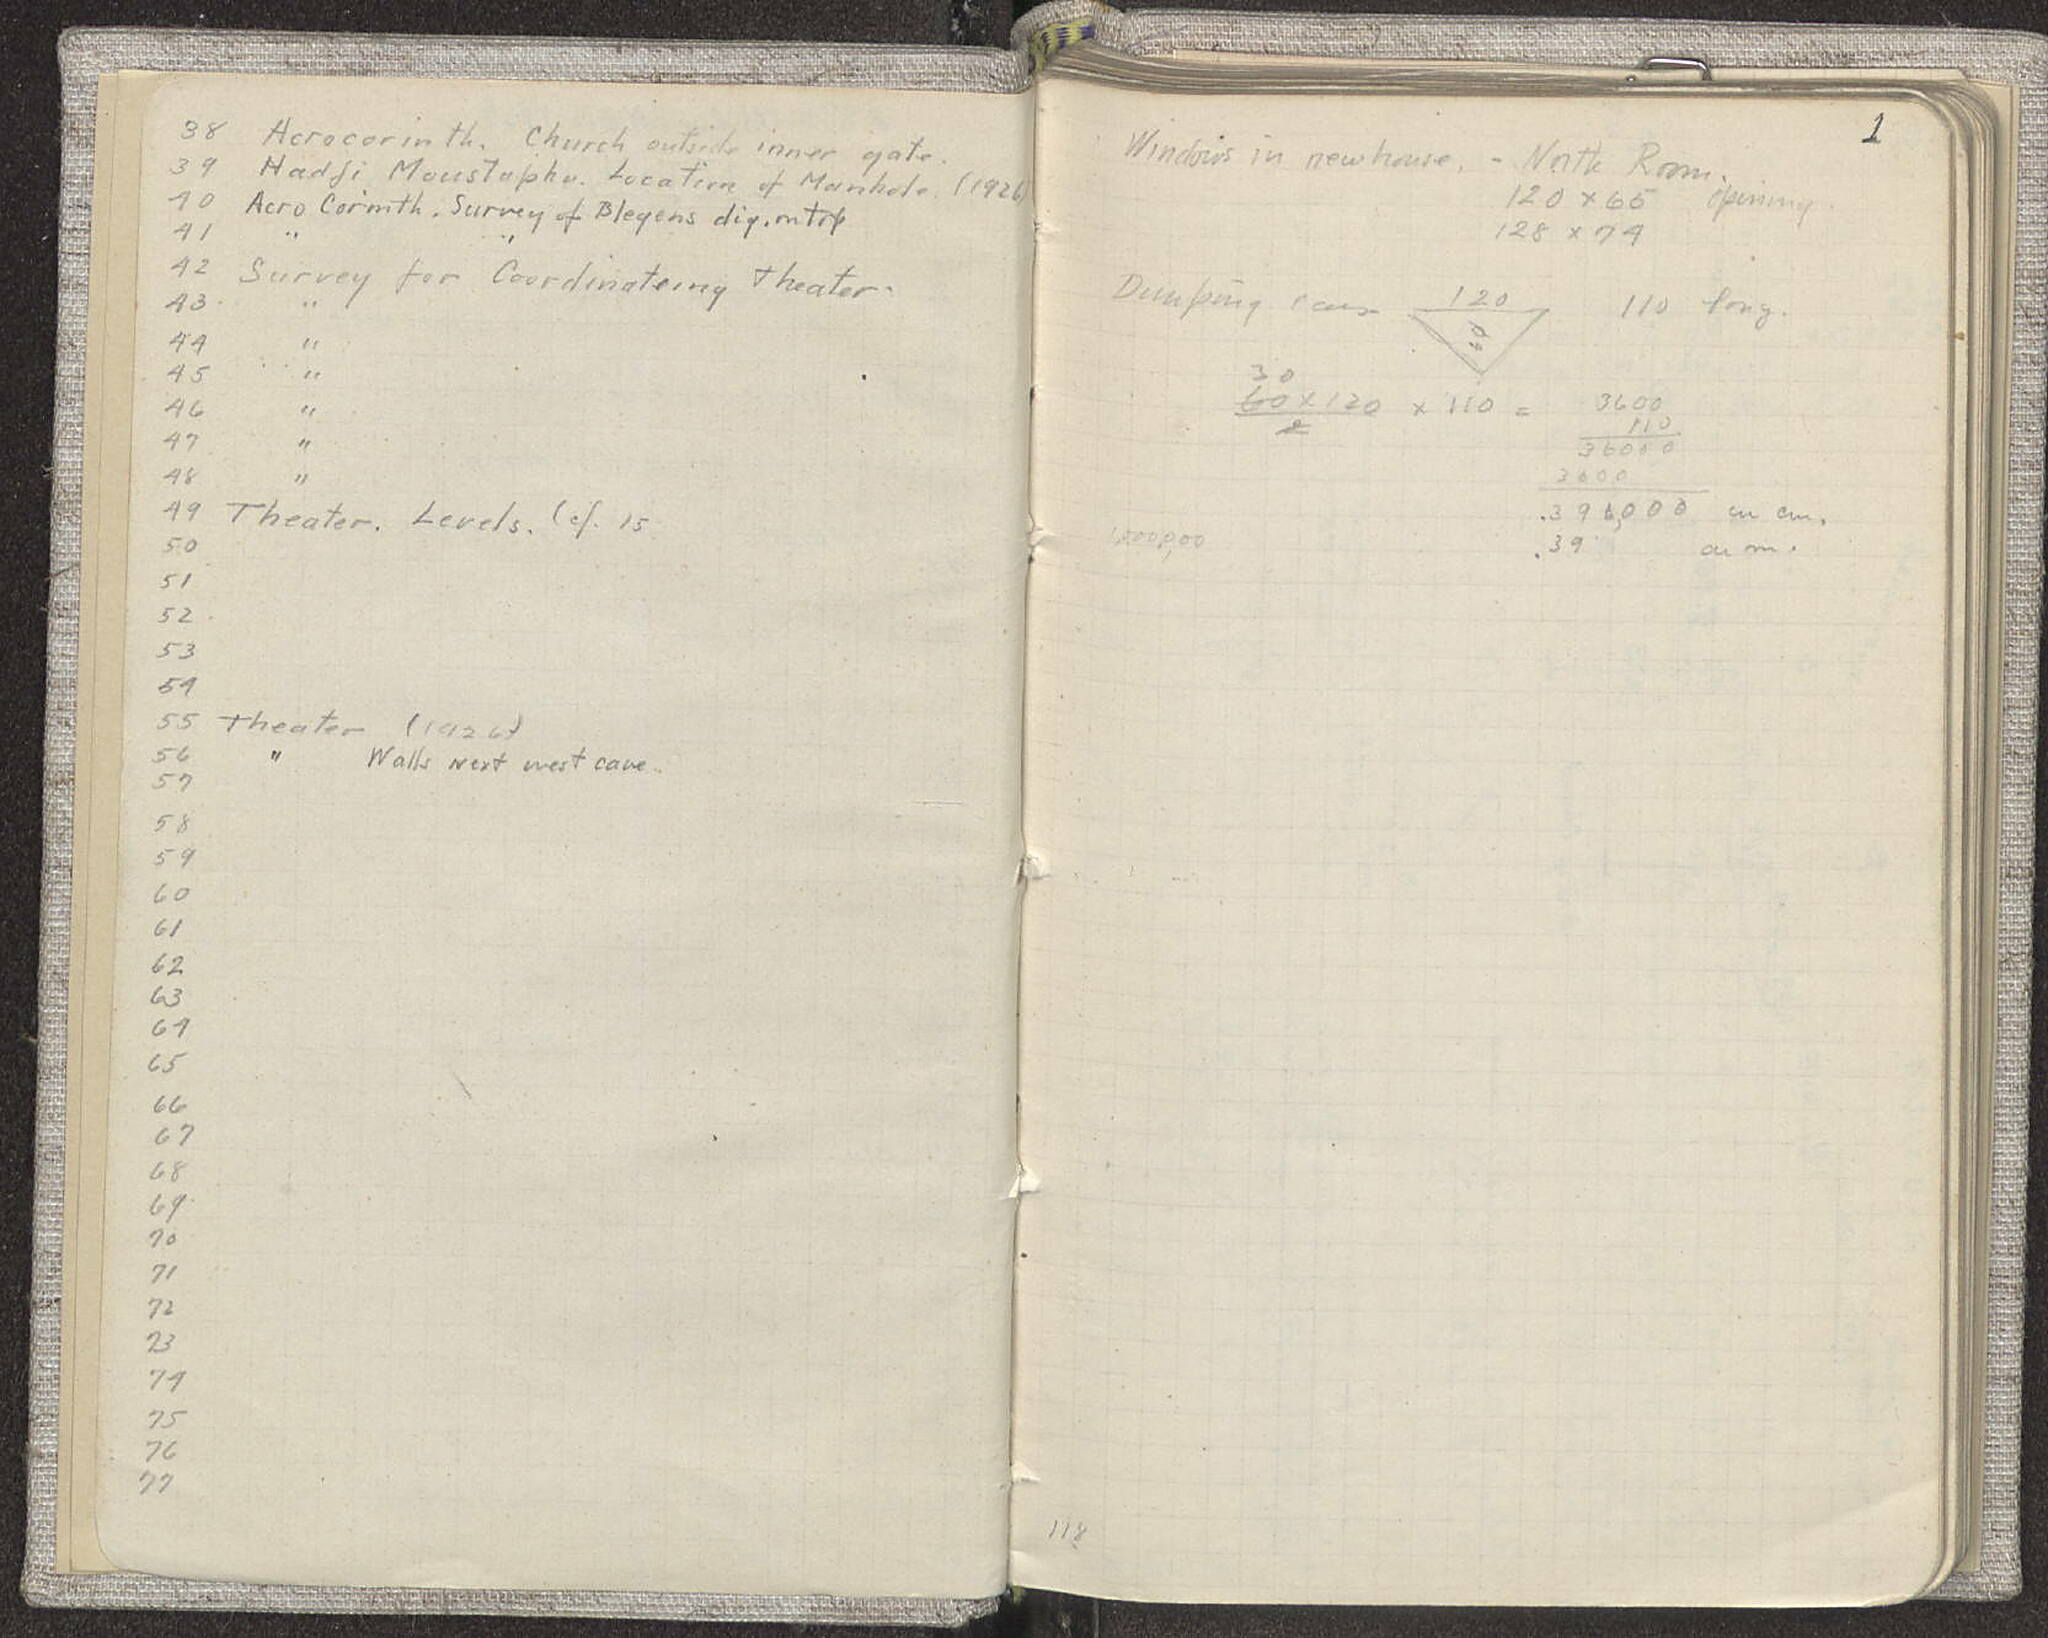 38 Acrocorinth. Church outside inner gate.
39 Hadji Moustapha. Location of Manhole. (1926)
40 Acro Corinth. Survey of Blegens dig. on top
41 " "
42 Survey for Coordinateing Theater.
43 "
44 "
45 "
46 "
47 "
48 "
49 Theater. Levels. (cf. 15
50
51
52
53
54
55 Theater (1926)
56 " Walls next west cave.
57
58
59
60
61
62
63
64
65
66
67
68
69
70
71
72
73
74
75
76
77
1
Windows in new house. - North Room.
120 x 65 opening.
128 x 74
Dumping cars 120 110 long.
30
60 x 120 x 110 = 3600
2 110
36000
3600
.396,000 cu cm.
.39 cu m.
118